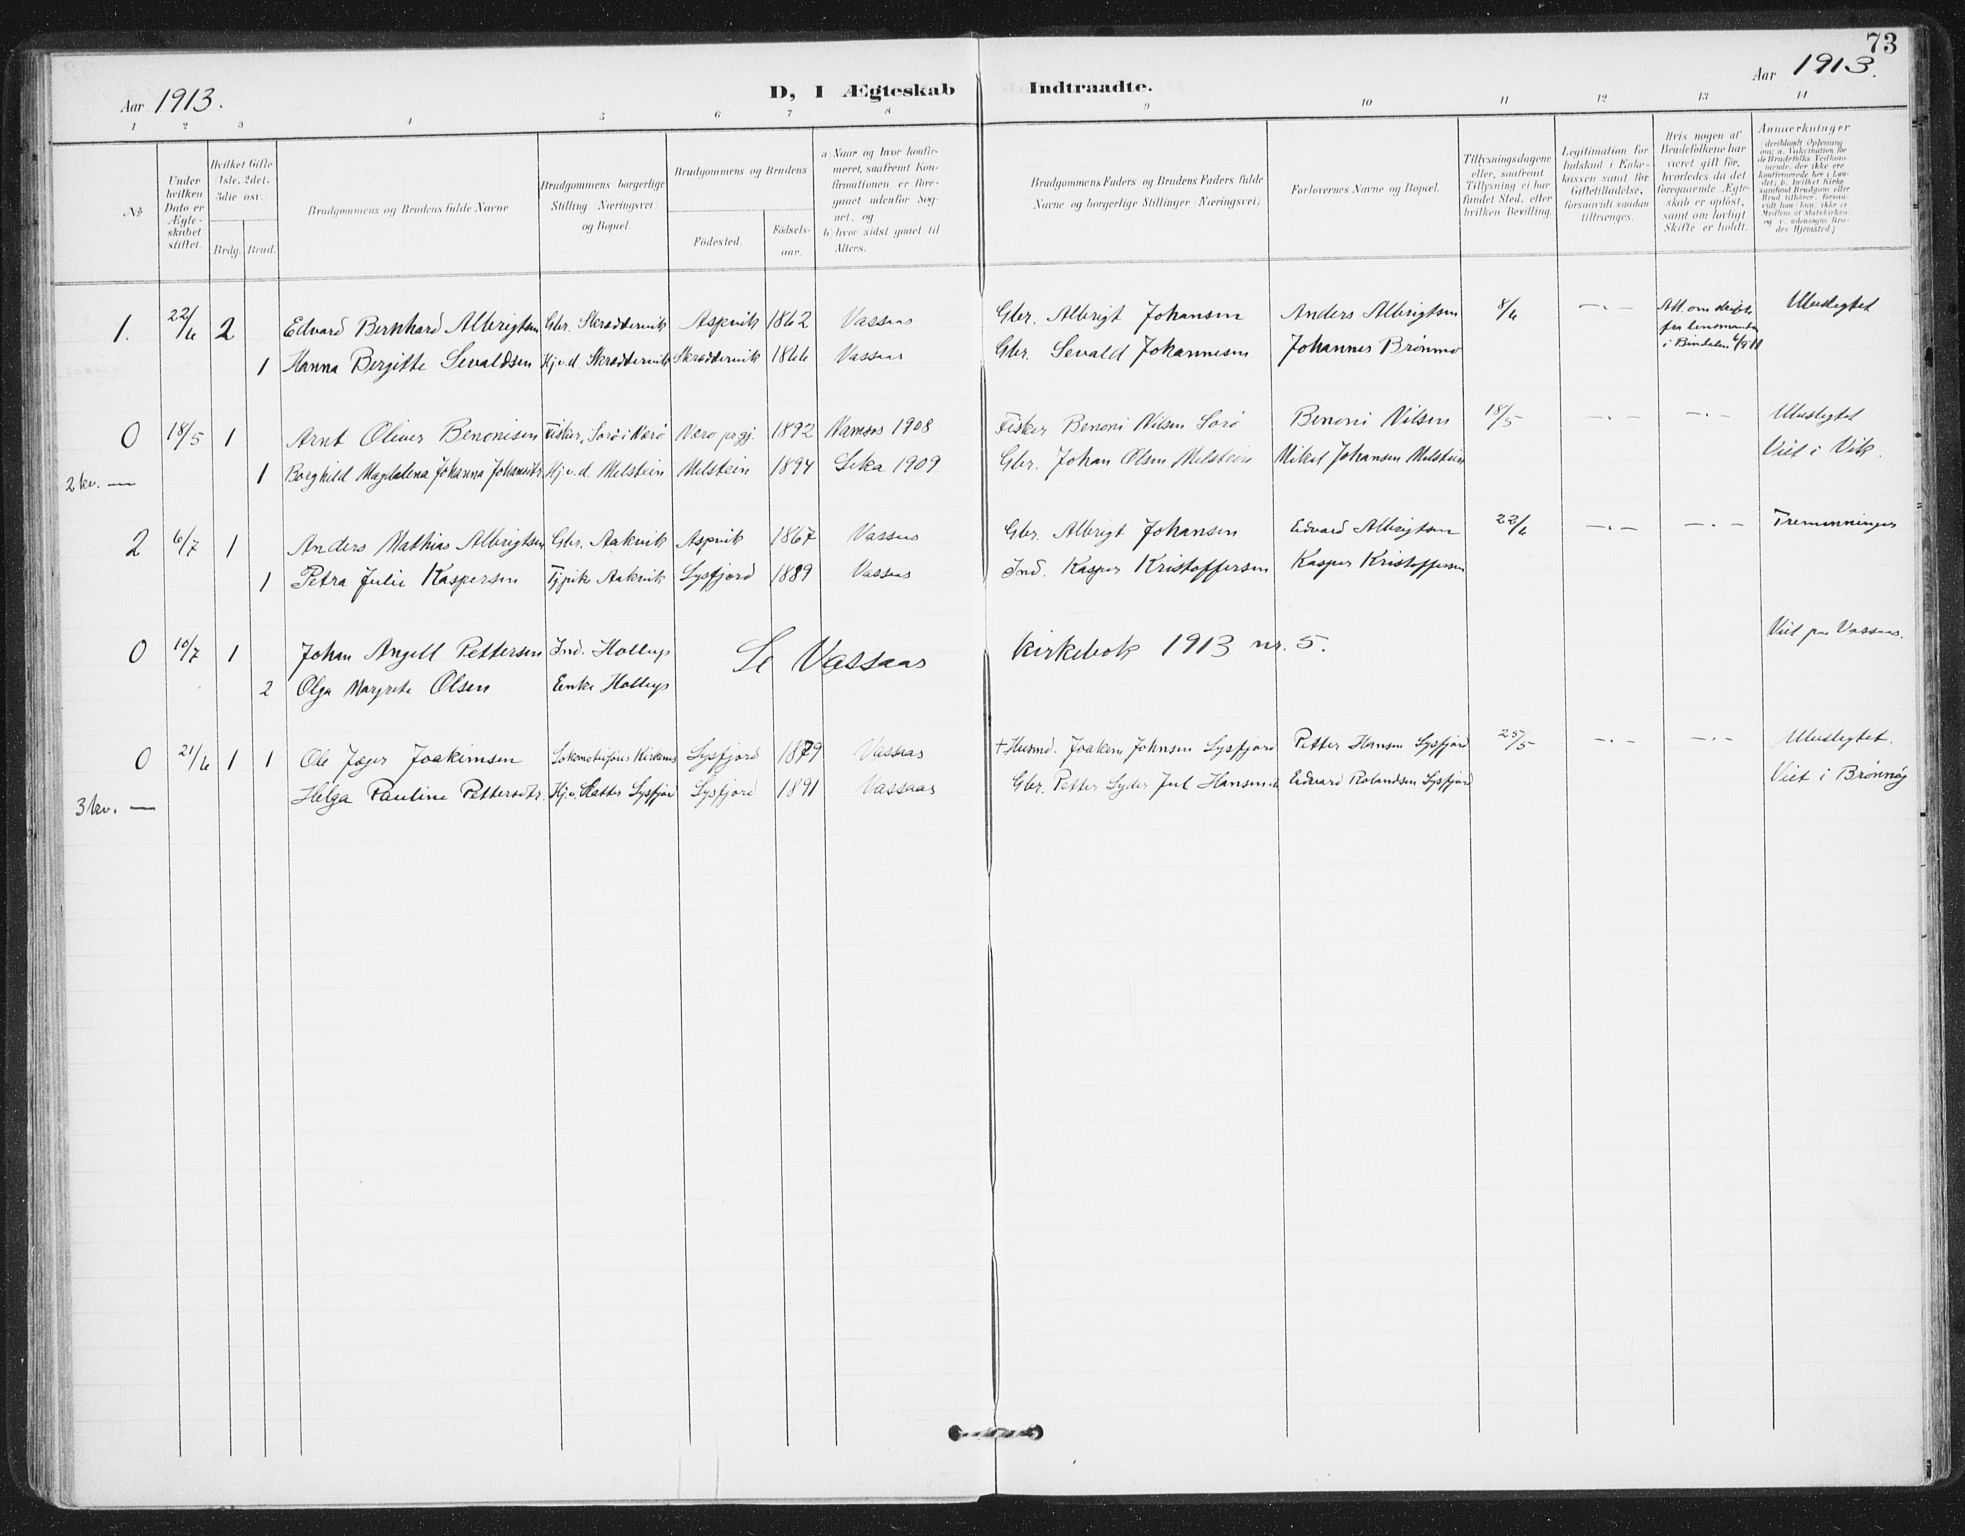 73
Aar 1913.
D, I Ægteskab Indtraadte.
Aar 1913.
1 2 3 4 5 6 7 8 9 10 11 12 13 14
No
Under hvilken Dato er Ægteskabet stiftet.
Hvilket Gifte 1ste, 2det, 3die osv.
Brdg. Brud.
Brudgommens og Brudens fulde Navne
Brudgommens borgerlige Stilling (Næringsvei) og Bopæl.
Brudgommens og Brudens
Fødested.
Fødselsaar.
a) Naar og hvor konfirmeret, saafremt Konfirmationen er foregaaet udenfor Sognet, og
b) hvor sidst gaaet til Alters.
Brudgommens Faders og Brudens Faders fulde Navne og borgerlige Stillinger (Næringsvei)
Forlovernes Navne og Bopæl.
Tillysningsdagene eller, saafremt Tillysning ei har fundet Sted, efter hvilken Bevilling.
Legitimation for Indskud i Enkekassen samt for Giftetilladelse, forsaavidt saadan tiltrænges.
Hvis nogen af Brudefolkene har været gift før, hvorledes da det foregaaende Ægteskab er opløst, samt om lovligt Skifte er holdt.
Anmerkninger
1. 22/6 2 Edvard Bernhard Albrigtsen Gbr. Skræddervik Aspvik 1862 Vassaas Gbr. Albrigt Johansen Anders Albrigtsen 8/6 —.— Att. om skifte fra lensmanden i Bindalen 6/9 11 Ubeslegtet
1 Hanna Bergitte Sevaldsen Hj.v.d. Skræddervik Skræddervik 1866 Vassaas Gbr. Sevald Johannesen Johannes Brønmo
0 18/5 1 Arnt Oliver Benonisen Fisker, Sørø i Værø Værø prgj. 1892 Namsos 1908 Fisker Benoni Nilsen Sørø Benoni Nilsen 18/5 —.— —.— Ubeslegtet
2 kv. — 1 Borghild Magdalena Johanna Johansdtr Hj.v.d. Melstein Melstein 1894 Leka 1909 Gbr. Johan Olsen Melstein Mikal Johansen Melstein Viet i Vik.
2 6/7 1 Anders Mathias Albrigtsen Gbr. Aakvik Aspvik 1867 Vassaas Gbr. Albrigt Johansen Edvard Albrigtsen 22/6 —.— —.— Tremenninger
1 Petra Julie Kaspersen Tjpike Aakvik Sysfjord 1889 Vassaas Ind. Kasper Kristoffersen Kasper Kristoffersen
0 10/7 1 Johan Angell Pettersen Ind. Hollup Se Vassaas kirkebok 1913 nr. 5. Viet paa Vassaas.
2 Olga Margrete Olsen Enke Hollup
0 21/6 1 1 Ole Jæger Joakimsen Lokomotivfører Kirkenes Sysfjord 1879 Vassaas + Husmd. Joakim Johnsen Sysfjord Petter Hansen Sysfjord 25/5 —.— —.— Ubeslegtet.
3 kv. — Helga Pauline Pettersdtr. Sysfjord Sysfjord 1891 Vassaas Gbr. Petter Hansen Edvard Rolandsen Sysfjord Viet i Brønnøy